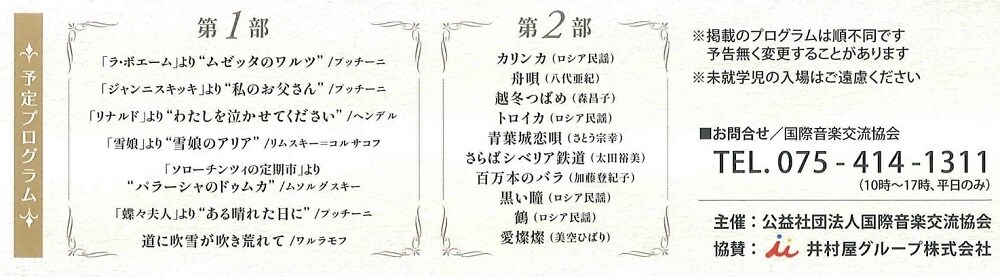 予定プログラム
第1部
「ラ・ボエーム」より“ムゼッタのワルツ”/プッチーニ
「ジャンニスキッキ」より“私のお父さん”/プッチーニ
「リナルド」より“わたしを泣かせてください”/ヘンデル
「雪娘」より“雪娘のアリア”/リムスキー=コルサコフ
「ソローチンツィの定期市」より
“パラーシャのドゥムカ”/ムソルグスキー
「蝶々夫人」より“ある晴れた日に”/プッチーニ
道に吹雪が吹き荒れて/ワルラモフ
第2部
カリンカ(ロシア民謡)
舟唄(八代亜紀)
越冬つばめ(森昌子)
トロイカ(ロシア民謡)
青葉城恋唄(さとう宗幸)
さらばシベリア鉄道(太田裕美)
百万本のバラ(加藤登紀子)
黒い瞳(ロシア民謡)
鶴(ロシア民謡)
愛燦燦(美空ひばり)
※掲載のプログラムは順不同です
予告無く変更することがあります
※未就学児の入場はご遠慮ください
■お問合せ/国際音楽交流協会
TEL. 075-414-1311
(10時~17時、平日のみ)
主催:公益社団法人国際音楽交流協会
協賛:井村屋グループ株式会社